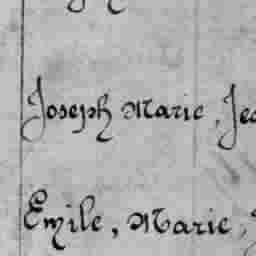 Joseph Marie, Jea
Emile, Marie,